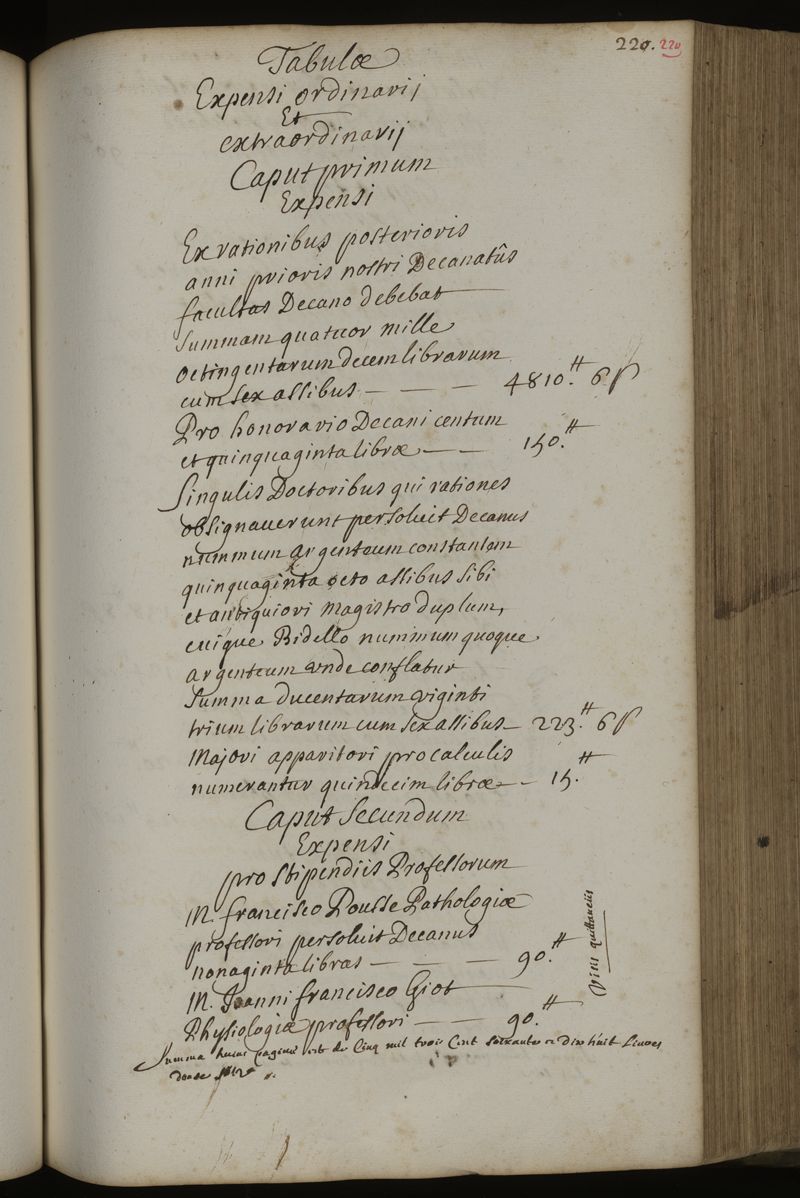 220. 220
Tabulæ
Expensi ordinarij
Et
extraordinarij
Caput primum
Expensi
Ex rationibus posterioris
anni prioris nostri Decanatûs
facultas Decano debebat
Summam quatuor mille
octingentarum decem librarum
cum sex assibus — — — 4810.tt 6 ſ
Pro honorario Decani centum
et quinquaginta libræ — — 150.tt
Singulis Doctoribus qui rationes
obsignaverunt persoluit Decanus
nummum argenteum constantem
quinquaginta octo assibus sibi
et antiquiori Magistro duplum,
cuique Bidello nummum quoque
argenteum unde conflatur
Summa ducentarum viginti
trium librarum cum sex assibus — 223.tt 6 ſ
Majori apparitori pro calculis
numerantur quindecim libræ — 15.tt
Caput Secundum
Expensi
pro Stipendiis Professorum
M. francisco Pousse Pathologiæ
professori persoluit Decanus
nonaginta libras — — — 90.tt
M. Joanni francisco Giot
Physiologiæ professori — — 90.tt
visis quittanciis
Summa huius paginæ est de Cinq mil trois Cent soixante et Dix huit Livres
douze